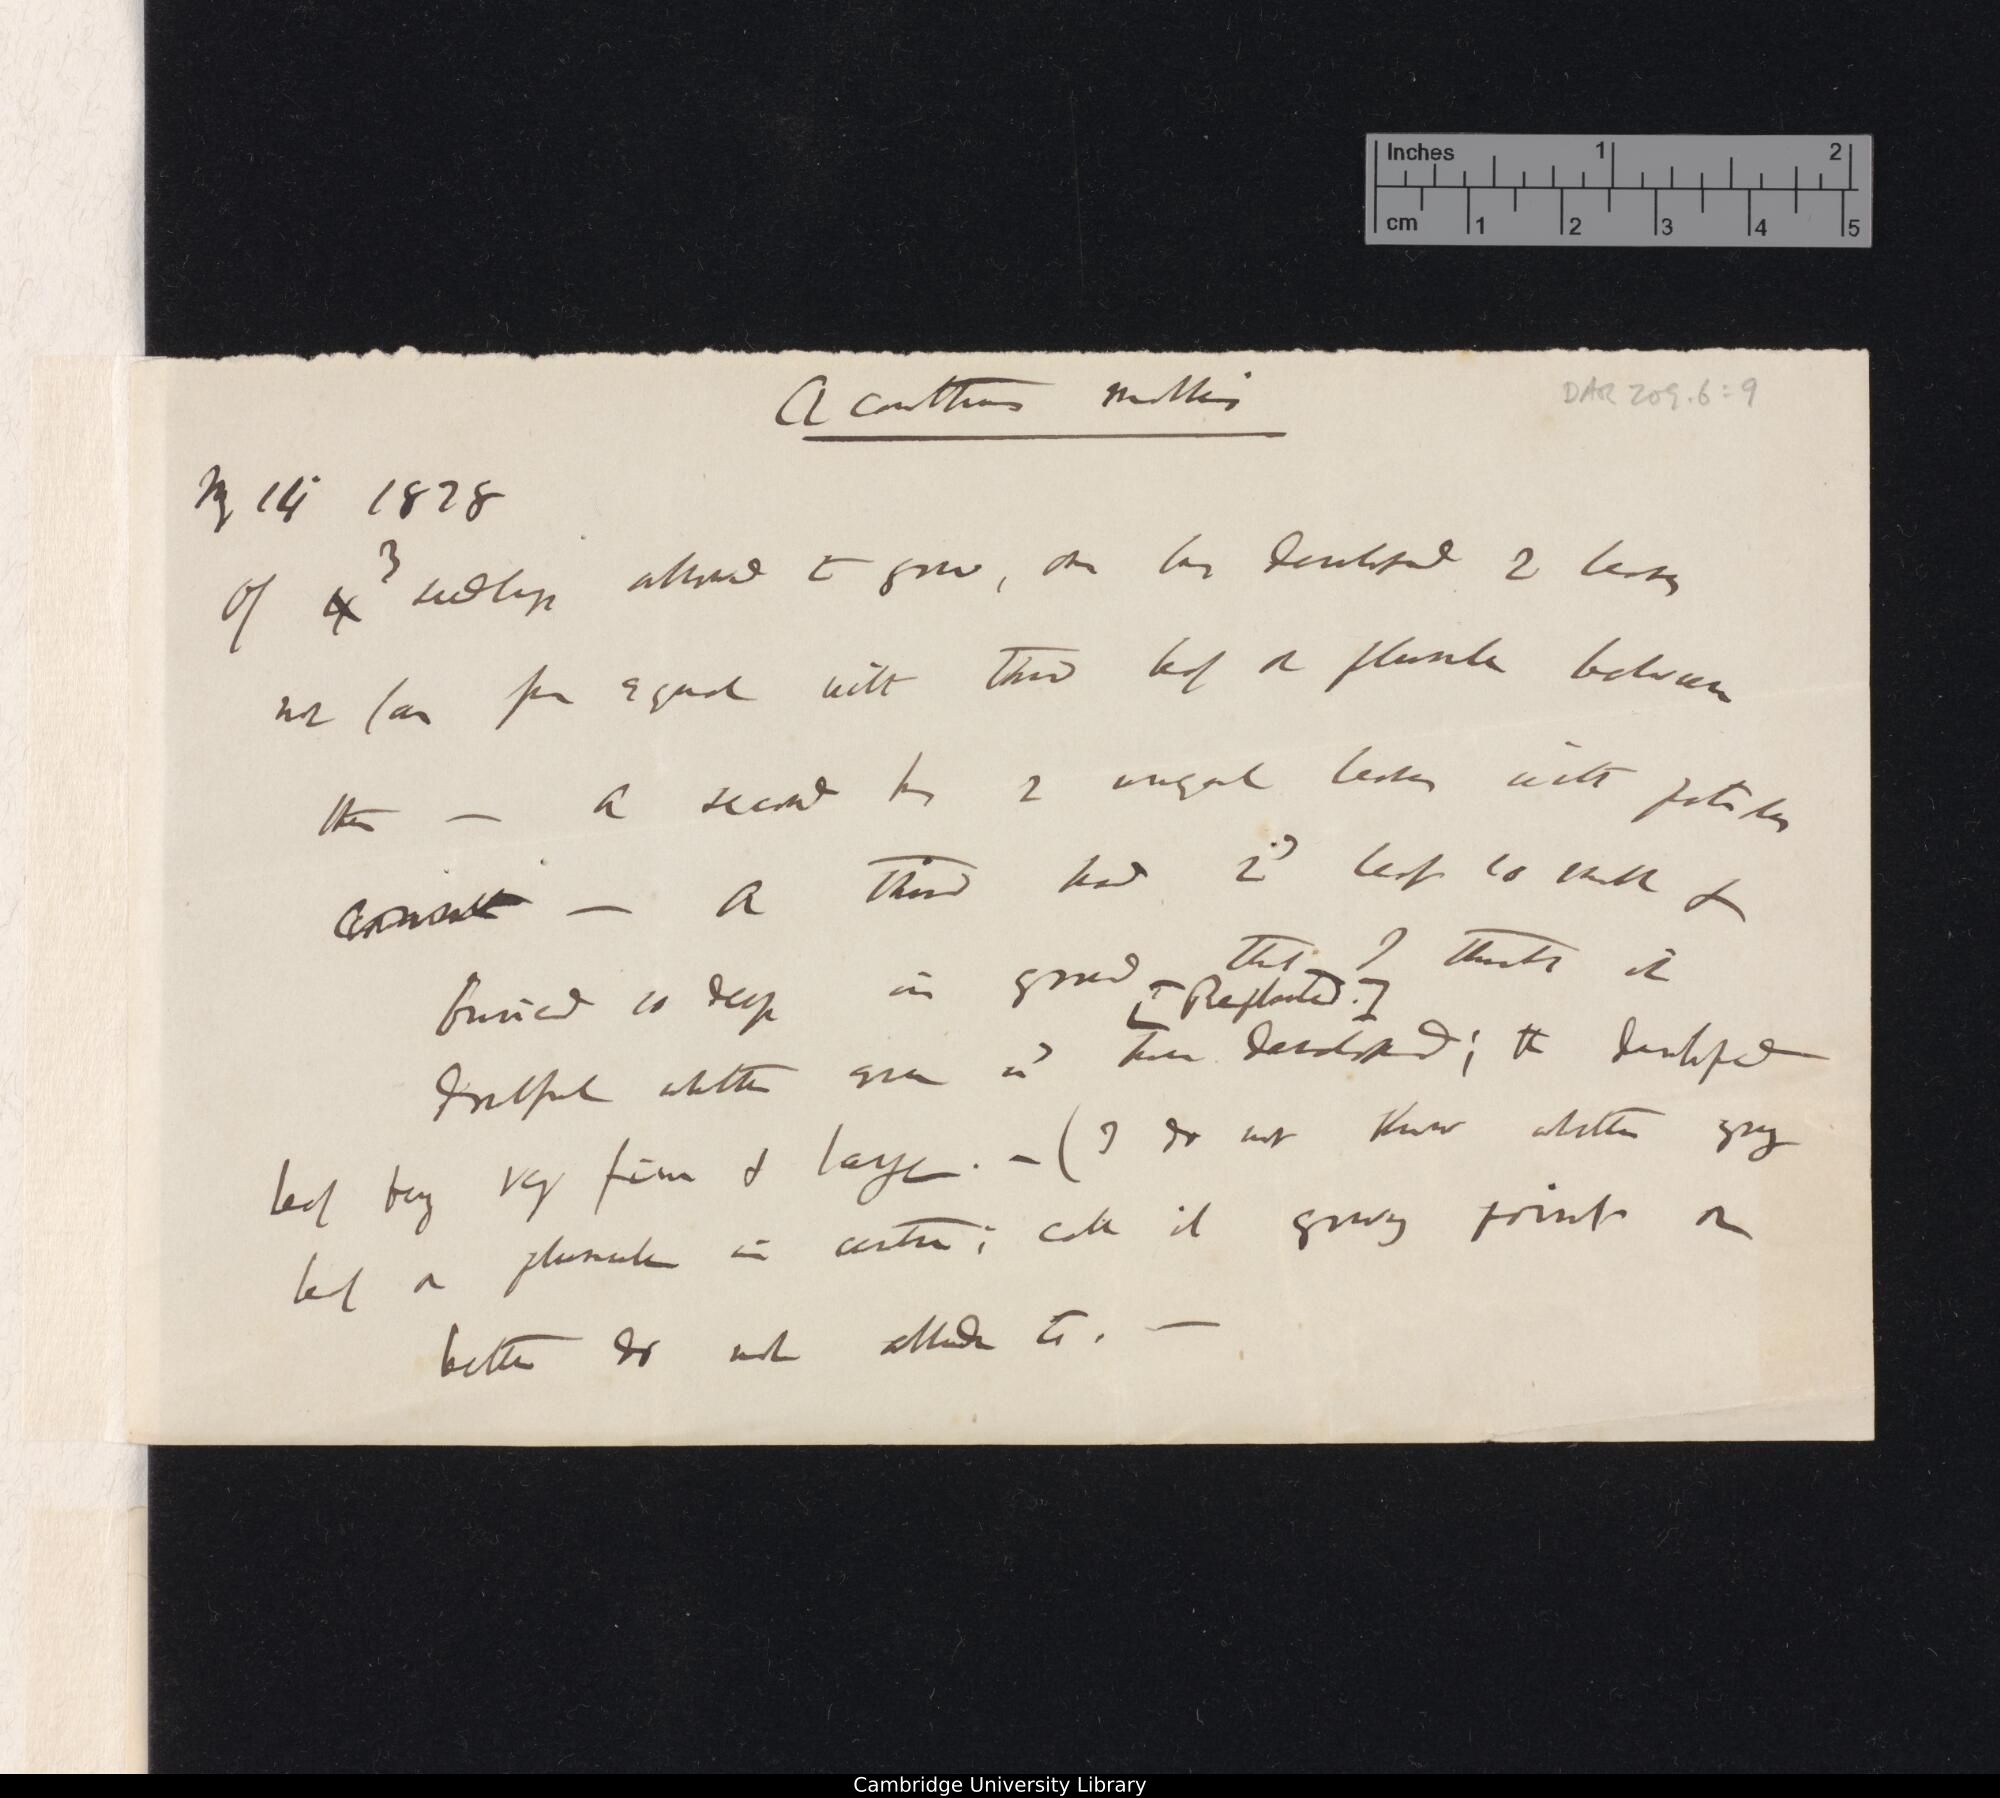 Inches 1 2
cm 1 2 3 4 5
Acanthus mollis
DAR 209.6:9
14 1878
Of 3 seedlings allowed to grow, one has developed 2 leaves
not far from equal with third leaf or plumule between
them — A second has 2 unequal leaves with petioles
— A third had 2d leaf so small &
buried so deep in ground that I thinks it
[Replanted.]
doubtful whether ever wd have developed; the developed
leaf being very fine & large. — (I do not know whether young
leaf or plumule in centre; call it growing point or
better do not allude to. —
Cambridge University Library